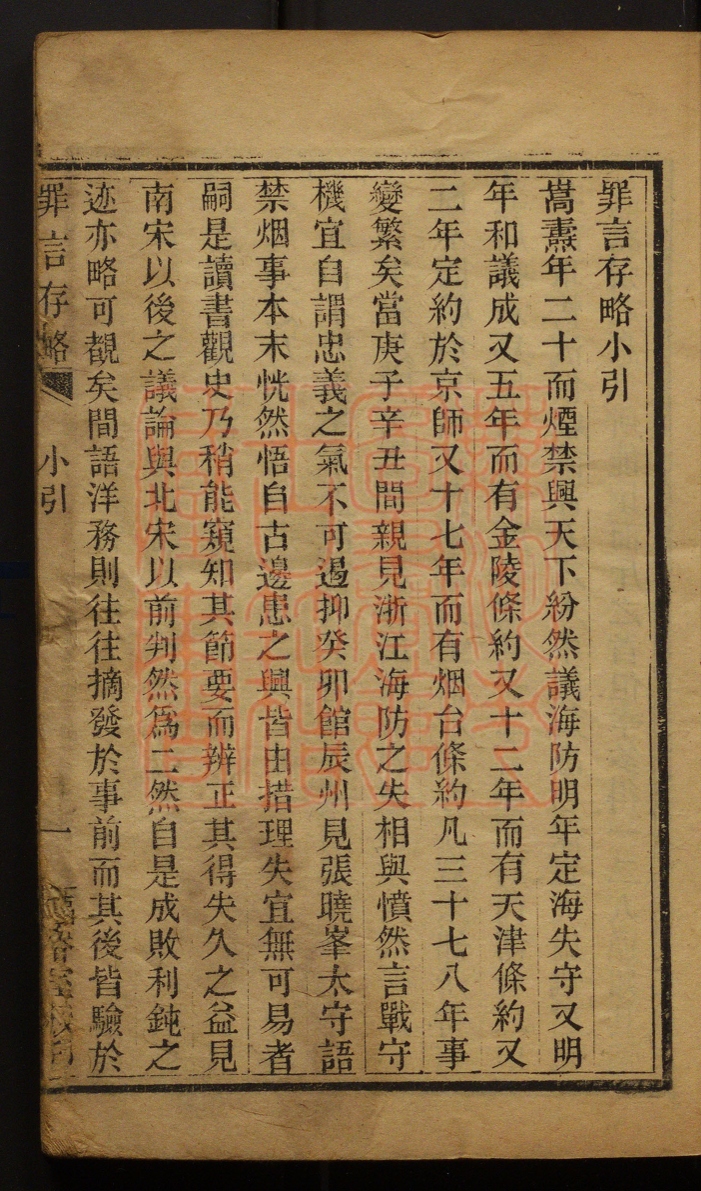 罪言存略小引
嵩燾年二十而煙禁興天下紛然議海防明年定海失守又明
年和議成又五年而有金陵條約又十二年而有天津條約又
二年定約於京師又十七年而有烟台條約凡三十七八年事
變繁矣當庚子辛丑間親見浙江海防之失相與憤然言戰守
機宜自謂忠義之氣不可遏抑癸卯館辰州見張曉峯太守語
禁烟事本末恍然悟自古邊患之興皆由措理失宜無可易者
嗣是讀書觀史乃稍能窺知其節要而辨正其得失久之益見
南宋以後之議論與北宋以前判然爲二然自是成敗利鈍之
迹亦略可覩矣間語洋務則往往摘發於事前而其後皆驗於
罪言存略
小引
一